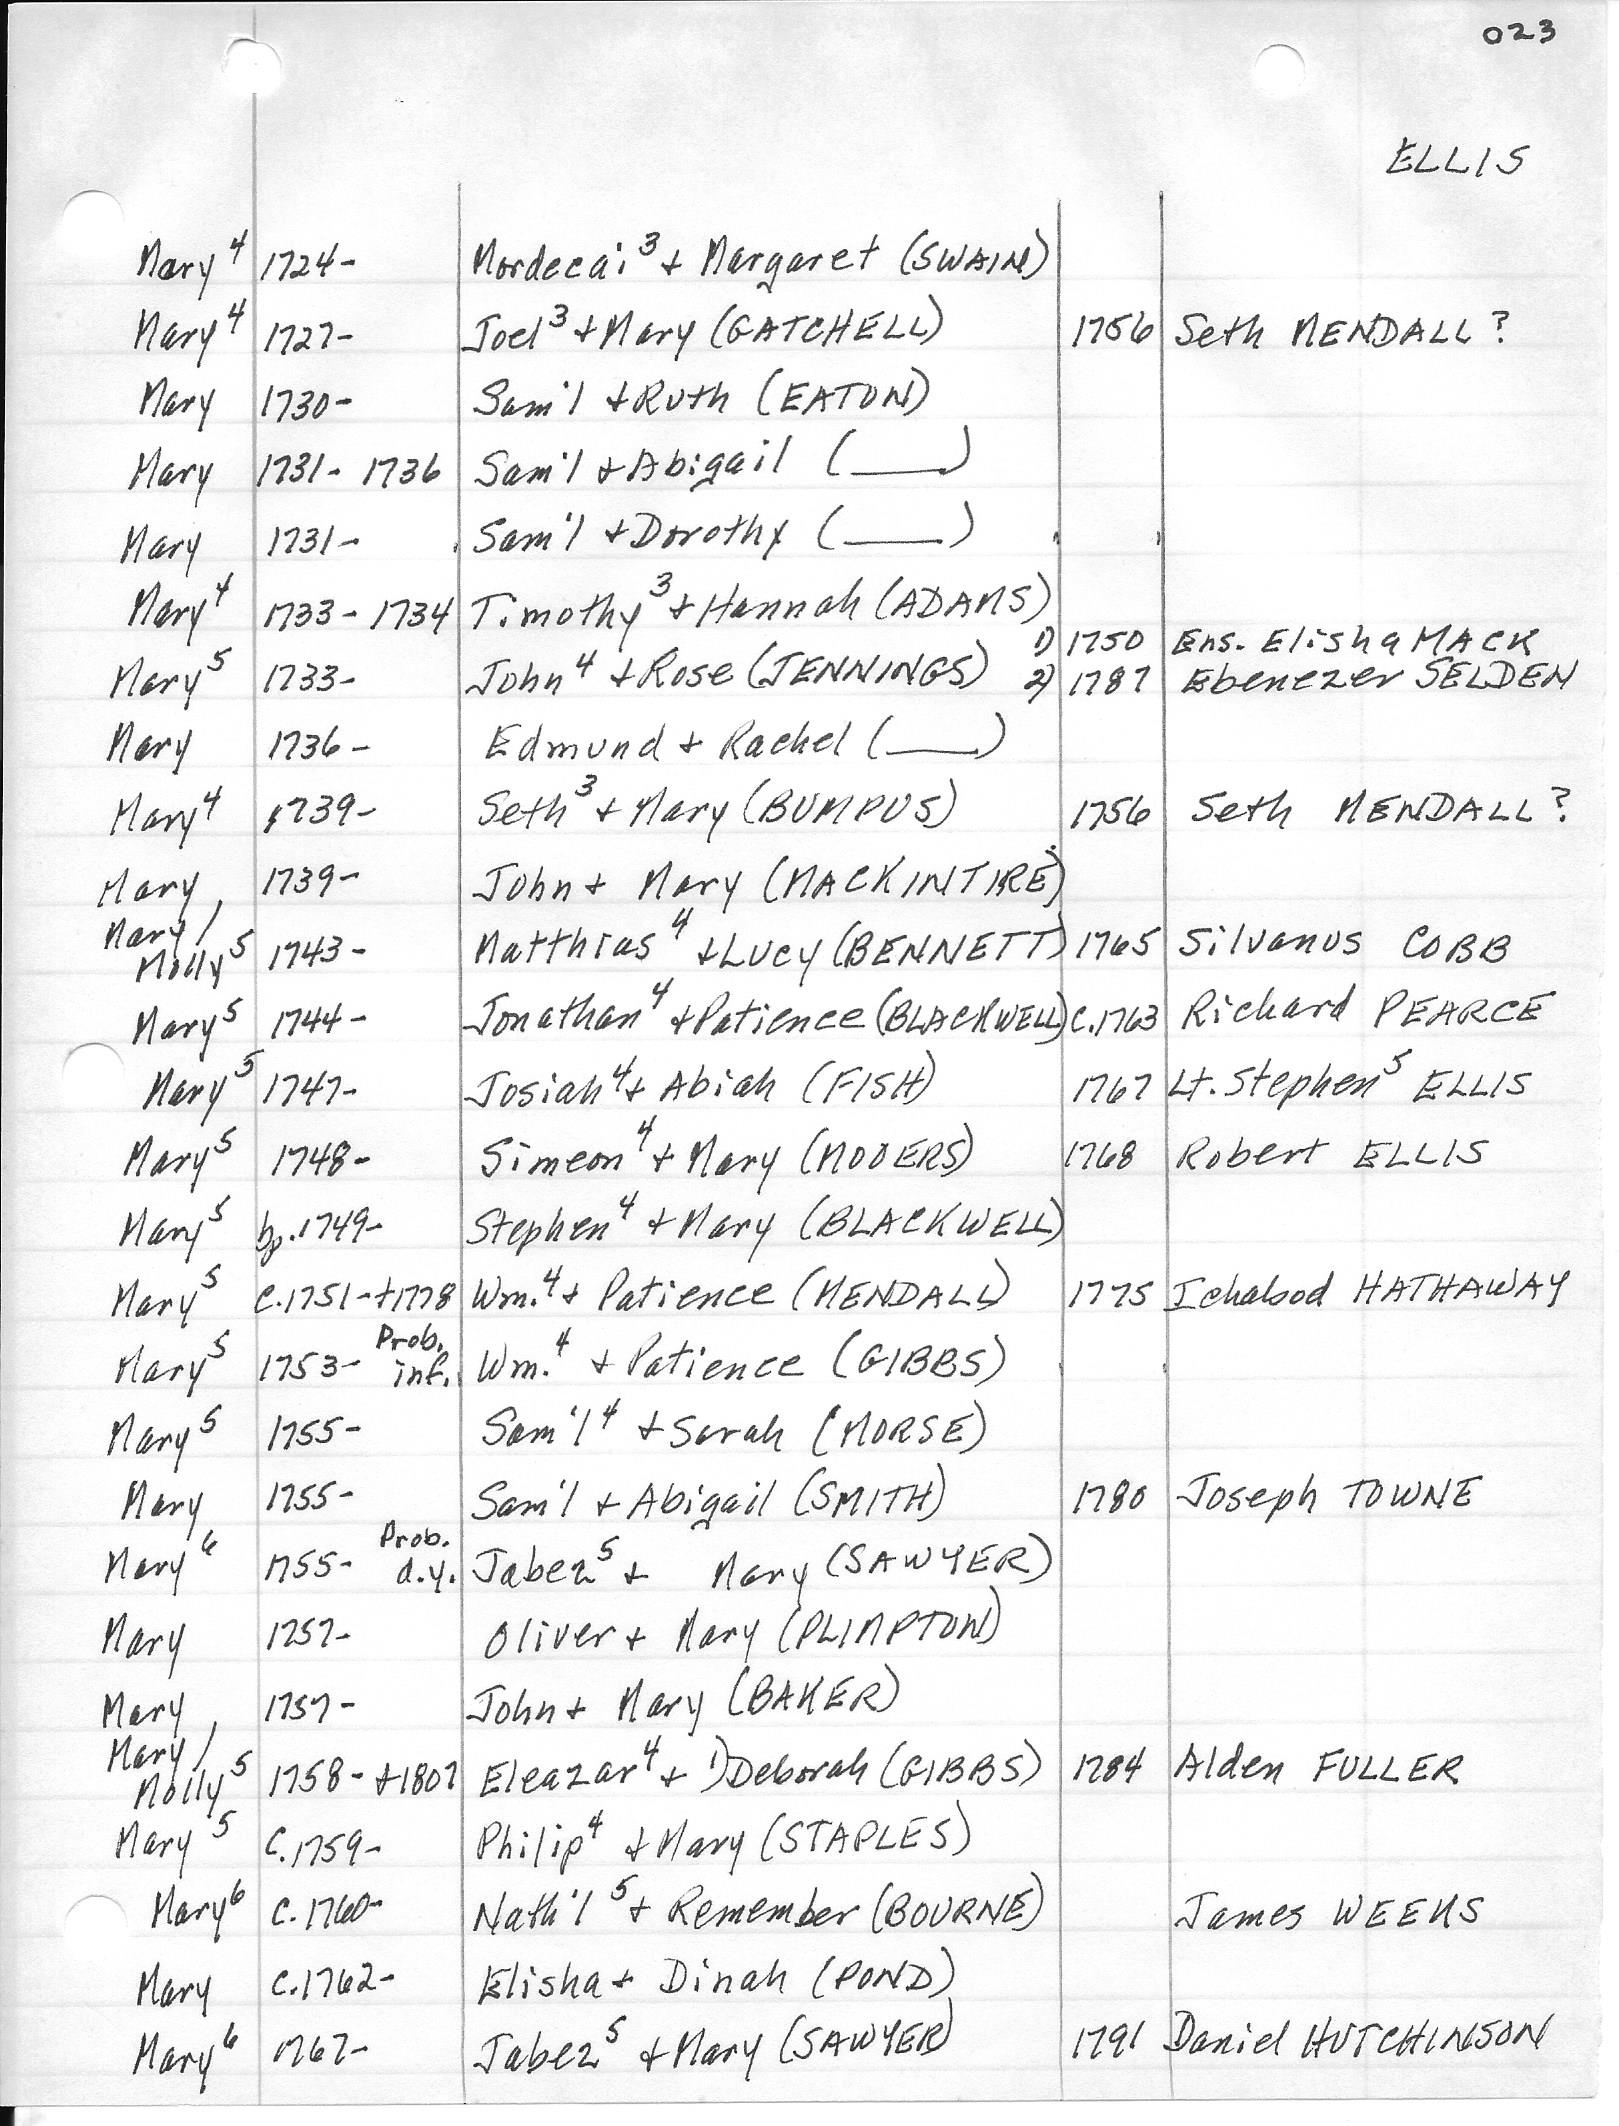 023
ELLIS
Mary⁴ 1724- Mordecai³ + Margaret (SWAIN)
Mary⁴ 1727- Joel³ + Mary (GATCHELL) 1756 Seth MENDALL?
Mary 1730- Sam'l + Ruth (EATON)
Mary 1731- 1736 Sam'l + Abigail (____)
Mary 1731- Sam'l + Dorothy (____)
Mary⁴ 1733- 1734 Timothy³ + Hannah (ADAMS)
1) 1750 Ens. Elisha MACK
Mary⁵ 1733- John⁴ + Rose (JENNINGS) 2) 1787 Ebenezer SELDEN
Mary 1736- Edmund + Rachel (____)
Mary⁴ 1739- Seth³ + Mary (BUMPUS) 1756 Seth MENDALL?
Mary 1739- John + Mary (MACKINTIRE)
Mary /
Molly⁵ 1743- Matthias⁴ + Lucy (BENNETT) 1765 Silvanus COBB
Mary⁵ 1744- Jonathan⁴ + Patience (BLACKWELL) c.1763 Richard PEARCE
Mary⁵ 1747- Josiah⁴ + Abiah (FISH) 1767 Lt. Stephen⁵ ELLIS
Mary⁵ 1748- Simeon⁴ + Mary (MOOERS) 1768 Robert ELLIS
Mary⁵ bp. 1749- Stephen⁴ + Mary (BLACKWELL)
Mary⁵ c.1751-+1778 Wm.⁴ + Patience (MENDALL) 1775 Ichabod HATHAWAY
Prob.
Mary⁵ 1753- inf. Wm.⁴ + Patience (GIBBS)
Mary⁵ 1755- Sam'l⁴ + Sarah (MORSE)
Mary 1755- Sam'l + Abigail (SMITH) 1780 Joseph TOWNE
Prob.
Mary⁶ 1755- d.y. Jabez⁵ + Mary (SAWYER)
Mary 1757- Oliver + Mary (PLIMPTON)
Mary 1757- John + Mary (BAKER)
Mary /
Molly⁵ 1758- +1807 Eleazar⁴ + 1) Deborah (GIBBS) 1784 Alden FULLER
Mary⁵ C.1759- Philip⁴ + Mary (STAPLES)
Mary⁶ c.1760- Nath'l⁵ + Remember (BOURNE) James WEEKS
Mary c.1762- Elisha + Dinah (POND)
Mary⁶ 1767- Jabez⁵ + Mary (SAWYER) 1791 Daniel HUTCHINSON